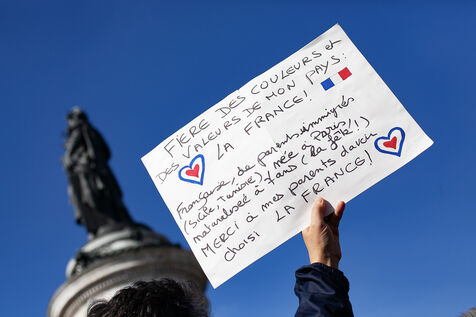 FIÈRE DES COULEURS et
DES VALEURS DE MON PAYS:
LA FRANCE!
Française, de parents immigrés
(Sicile, Tunisie), née à Paris,
naturalisée à 7 ans (la fête!)
MERCI à mes parents d'avoir
choisi LA FRANCE!